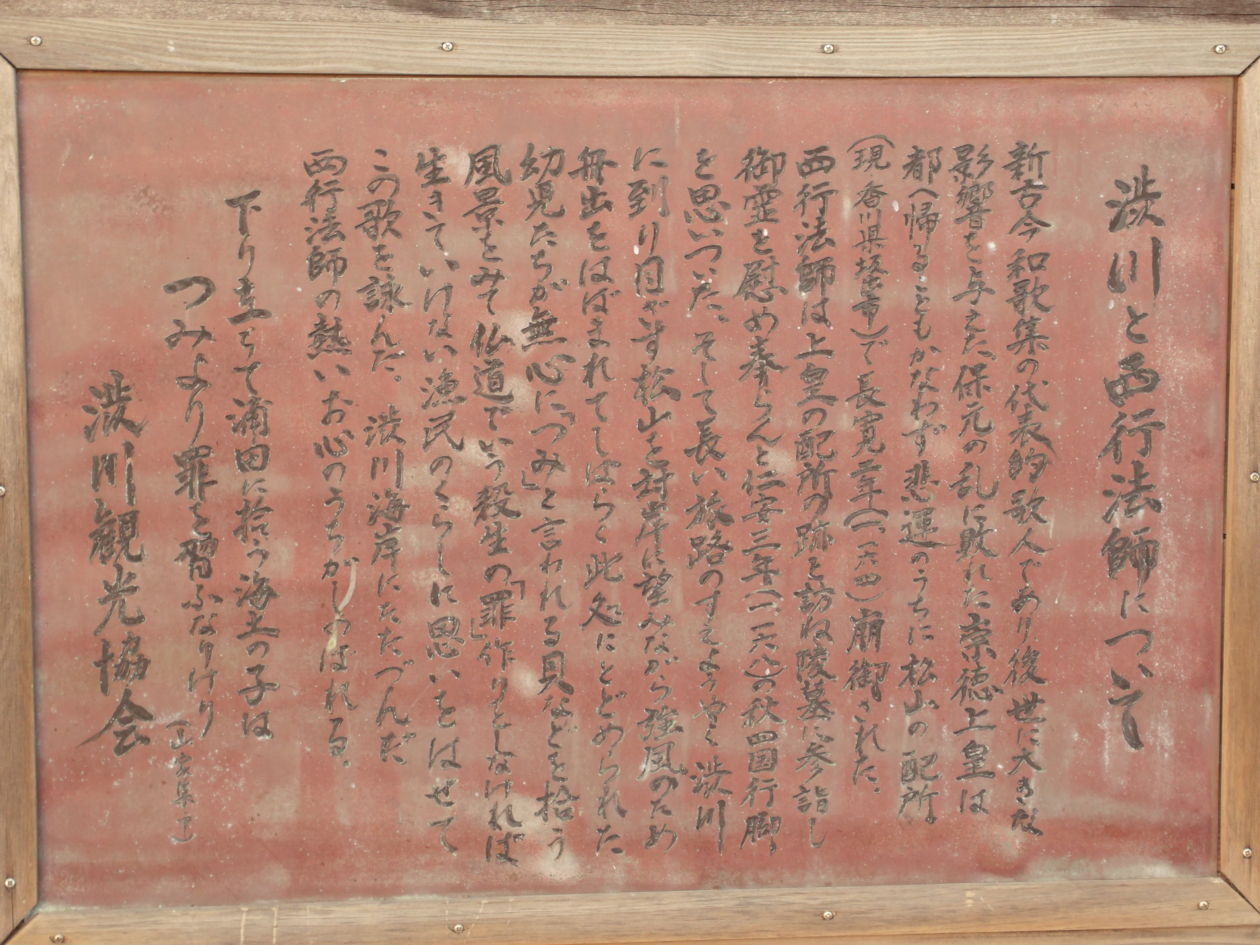 渋川と西行法師について
新古今和歌集の代表的歌人であり後世に大きな
影響を与えた、保元の乱に敗れた崇徳上皇は
都へ帰ることもかなわず悲運のうちに松山の配所
(現香川県坂出市)で長寛二年(一一六四)崩御された、
西行法師は上皇の配所の跡を訪ね陵墓に参詣し
御霊を慰め奉らんと仁安三年(一一六八)の秋四国行脚
を思いついた、そして長い旅路のすえようやく渋川
に到り目ざす松山を対岸に望みながら強風のため
舟出をはばまれてしばらく此処にとどめられた
幼児たちが無心に「つみ」と言われる貝などを拾う
風景をみて仏道でいう殺生の「罪」作りをしなければ
生きていけない漁民のくらしに思いをはせて
この歌を詠んだ、渋川海岸にたたづんだ
西行法師の熱いお心のうちがしのばれる、
下り立ちて浦田に拾う海士の子は
つみより罪を習ふなりけり
(山家集下)
渋川観光協会